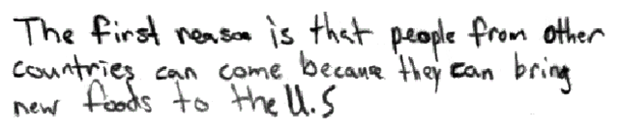 The first reason is that people from other
countries can come because they can bring
new foods to the U.S